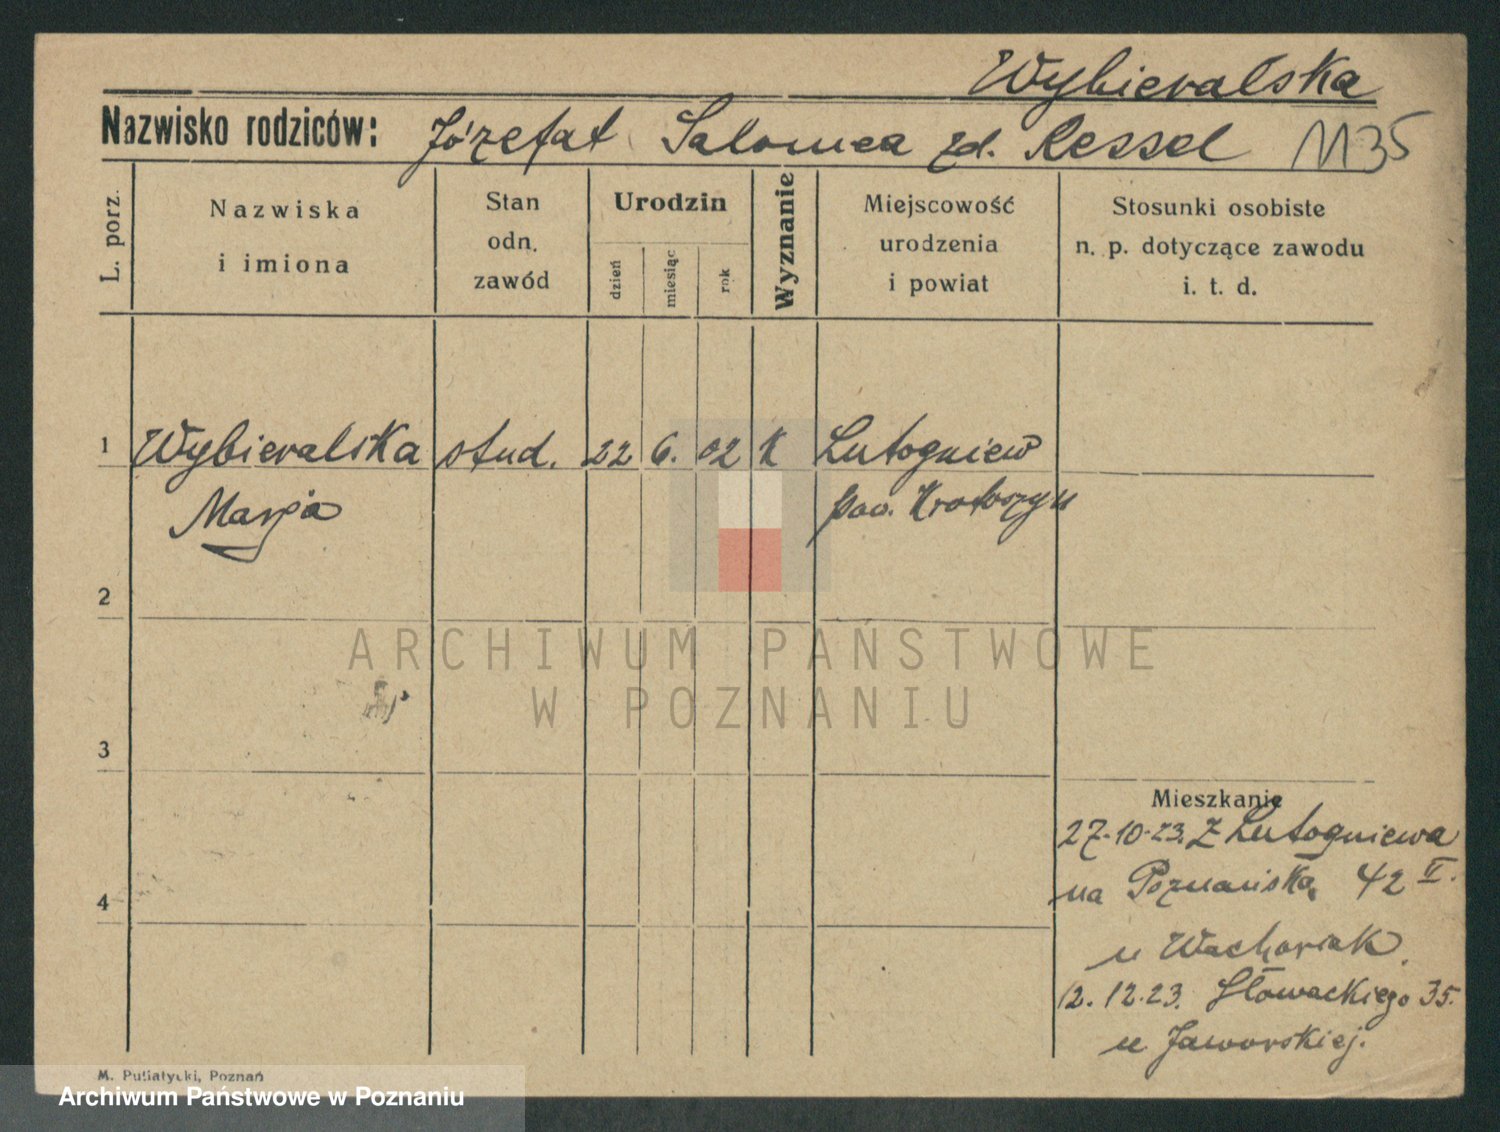 Wybieralska
Nazwisko rodziców: Józefat Salomea zd. Ressel 1135
L. porz.
Nazwiska
i imiona
Stan
odn.
zawód
Urodzin
dzień
miesiąc
rok
Wyznanie
Miejscowość
urodzenia
i powiat
Stosunki osobiste
n. p. dotyczące zawodu
i. t. d.
1 Wybieralska stud. 22 6. 02 K Lutogniew
Marja pow. Krotoszyn
2
ARCHIWUM PAŃSTWOWE
W POZNANIU
3
Mieszkanie
27.10.23. Z Lutogniewa
4
na Poznańska 42 II.
u Wachowiak.
12.12.23. Słowackiego 35.
u Jaworskiej.
M. Putiatycki, Poznań
Archiwum Państwowe w Poznaniu